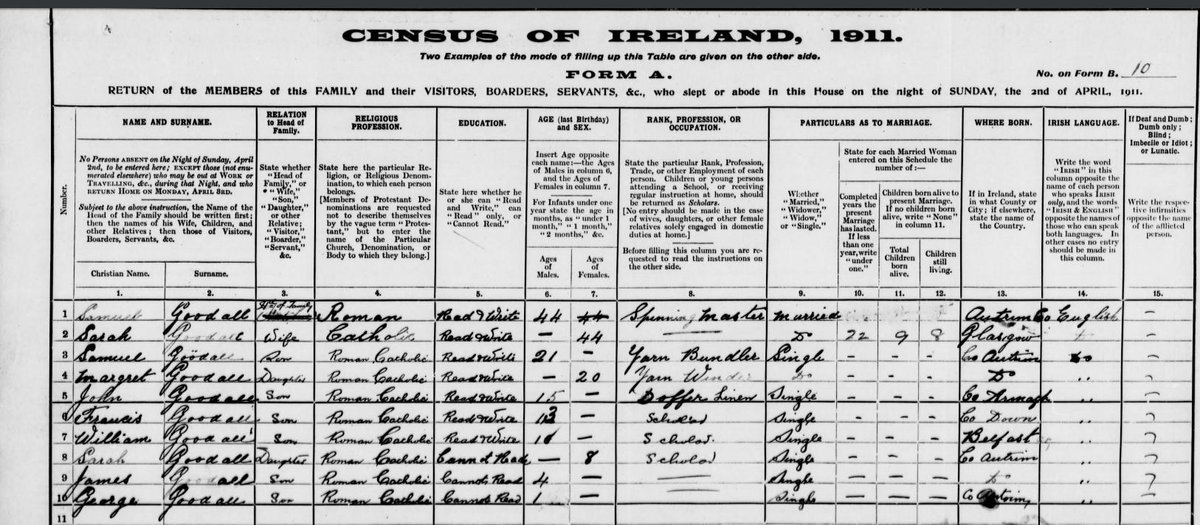 CENSUS OF IRELAND, 1911.
Two Examples of the mode of filling up this Table are given on the other side.
FORM A.
No. on Form B. 10
RETURN of the MEMBERS of this FAMILY and their VISITORS, BOARDERS, SERVANTS, &c., who slept or abode in this House on the night of SUNDAY, the 2nd of APRIL, 1911.
Number.
NAME AND SURNAME.
No Persons ABSENT on the Night of Sunday, April
2nd, to be entered here; EXCEPT those (not enu-
merated elsewhere) who may be out at WORK or
TRAVELLING, &c., during that Night, and who
RETURN HOME ON MONDAY, APRIL 3RD.
Subject to the above instruction, the Name of the
Head of the Family should be written first;
then the names of his Wife, Children, and
other Relatives; then those of Visitors,
Boarders, Servants, &c.
Christian Name.
Surname.
RELATION
to Head of
Family.
State whether
"Head of
Family," or
"Wife,"
"Son,"
"Daughter,"
or other
Relative;
"Visitor,"
"Boarder,"
"Servant,"
&c.
RELIGIOUS
PROFESSION.
State here the particular Re-
ligion, or Religious Denomi-
nation, to which each person
belongs.
[Members of Protestant De-
nominations are requested
not to describe themselves
by the vague term "Protes-
tant," but to enter the
name of the Particular
Church, Denomination, or
Body to which they belong.]
EDUCATION.
State here whether he
or she can "Read and
Write," can "Read"
only, or
"Cannot Read."
AGE (last Birthday)
and SEX.
Insert Age opposite
each name:—the Ages
of Males in column 6,
and the Ages of
Females in column 7.
For Infants under one
year state the age in
months, as "under 1
month," "1 month,"
"2 months," &c.
Ages
of
Males.
Ages
of
Females.
RANK, PROFESSION, OR
OCCUPATION.
State the particular Rank, Profession,
Trade, or other Employment of each
person. Children or young persons
attending a School, or receiving
regular instruction at home, should
be returned as Scholars.
[No entry should be made in the case
of wives, daughters, or other female
relatives solely engaged in domestic
duties at home.]
Before filling this column you are re-
quested to read the instructions on
the other side.
PARTICULARS AS TO MARRIAGE.
Whether
"Married,"
"Widower,"
"Widow,"
or "Single."
State for each Married Woman
entered on this Schedule the
number of:—
Completed
years the
present
Marriage
has lasted.
If less
than one
year, write
"under
one."
Children born alive to
present Marriage. If
no children born
alive, write "None"
in column 11.
Total
Children
born
alive.
Children
still
living.
WHERE BORN.
If in Ireland, state
in what County or
City; if elsewhere,
state the name of
the Country.
IRISH LANGUAGE.
Write the word
"IRISH" in this
column opposite the
name of each person
who speaks IRISH
only, and the words
"IRISH & ENGLISH"
opposite the names of
those who can speak
both languages. In
other cases no entry
should be made in
this column.
If Deaf and Dumb;
Dumb only;
Blind;
Imbecile or Idiot;
or Lunatic.
Write the respec-
tive infirmities
opposite the name
of the afflicted
person.
1. 2. 3. 4. 5. 6. 7. 8. 9. 10. 11. 12. 13. 14. 15.
1 Samuel Goodall Hd of Family Roman Read & Write 44 44 Spinning Master Married Antrim Co English –
2 Sarah Goodall Wife Catholic Read & Write – 44 Do 22 9 8 Glasgow –
3 Samuel Goodall Son Roman Catholic Read & Write 21 – Yarn Bundler Single – – – Co Antrim Do –
4 Margret Goodall Daughter Roman Catholic Read & Write – 20 Yarn Winder Do – – – Do „ –
5 John Goodall Son Roman Catholic Read & Write 15 – Doffer Linen Single – – – Co Armagh „ –
6 Francis Goodall Son Roman Catholic Read & Write 13 – Scholar Single – – – Co Down „ –
7 William Goodall Son Roman Catholic Read & Write – Scholar Single – – – Belfast „ –
8 Sarah Goodall Daughter Roman Catholic Cannot Read – 8 Scholar Single – – – Co Antrim „ –
9 James Goodall Son Roman Catholic Cannot Read 4 – Single – – – Do „ –
10 George Goodall Son Roman Catholic Cannot Read 1 – Single – – – Co Antrim „ –
11